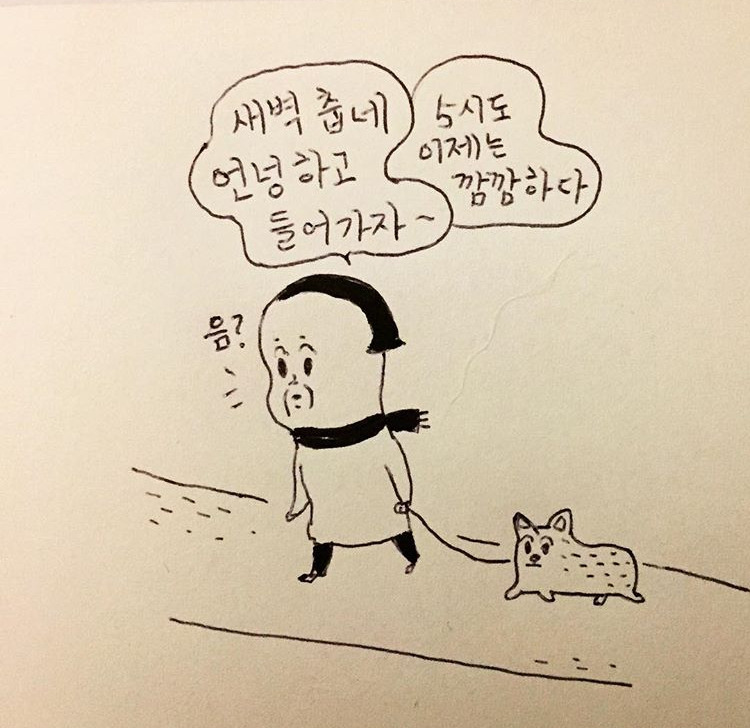 새벽 춥네
언넝하고
들어가자~
5시도
이제는
깜깜하다
음?